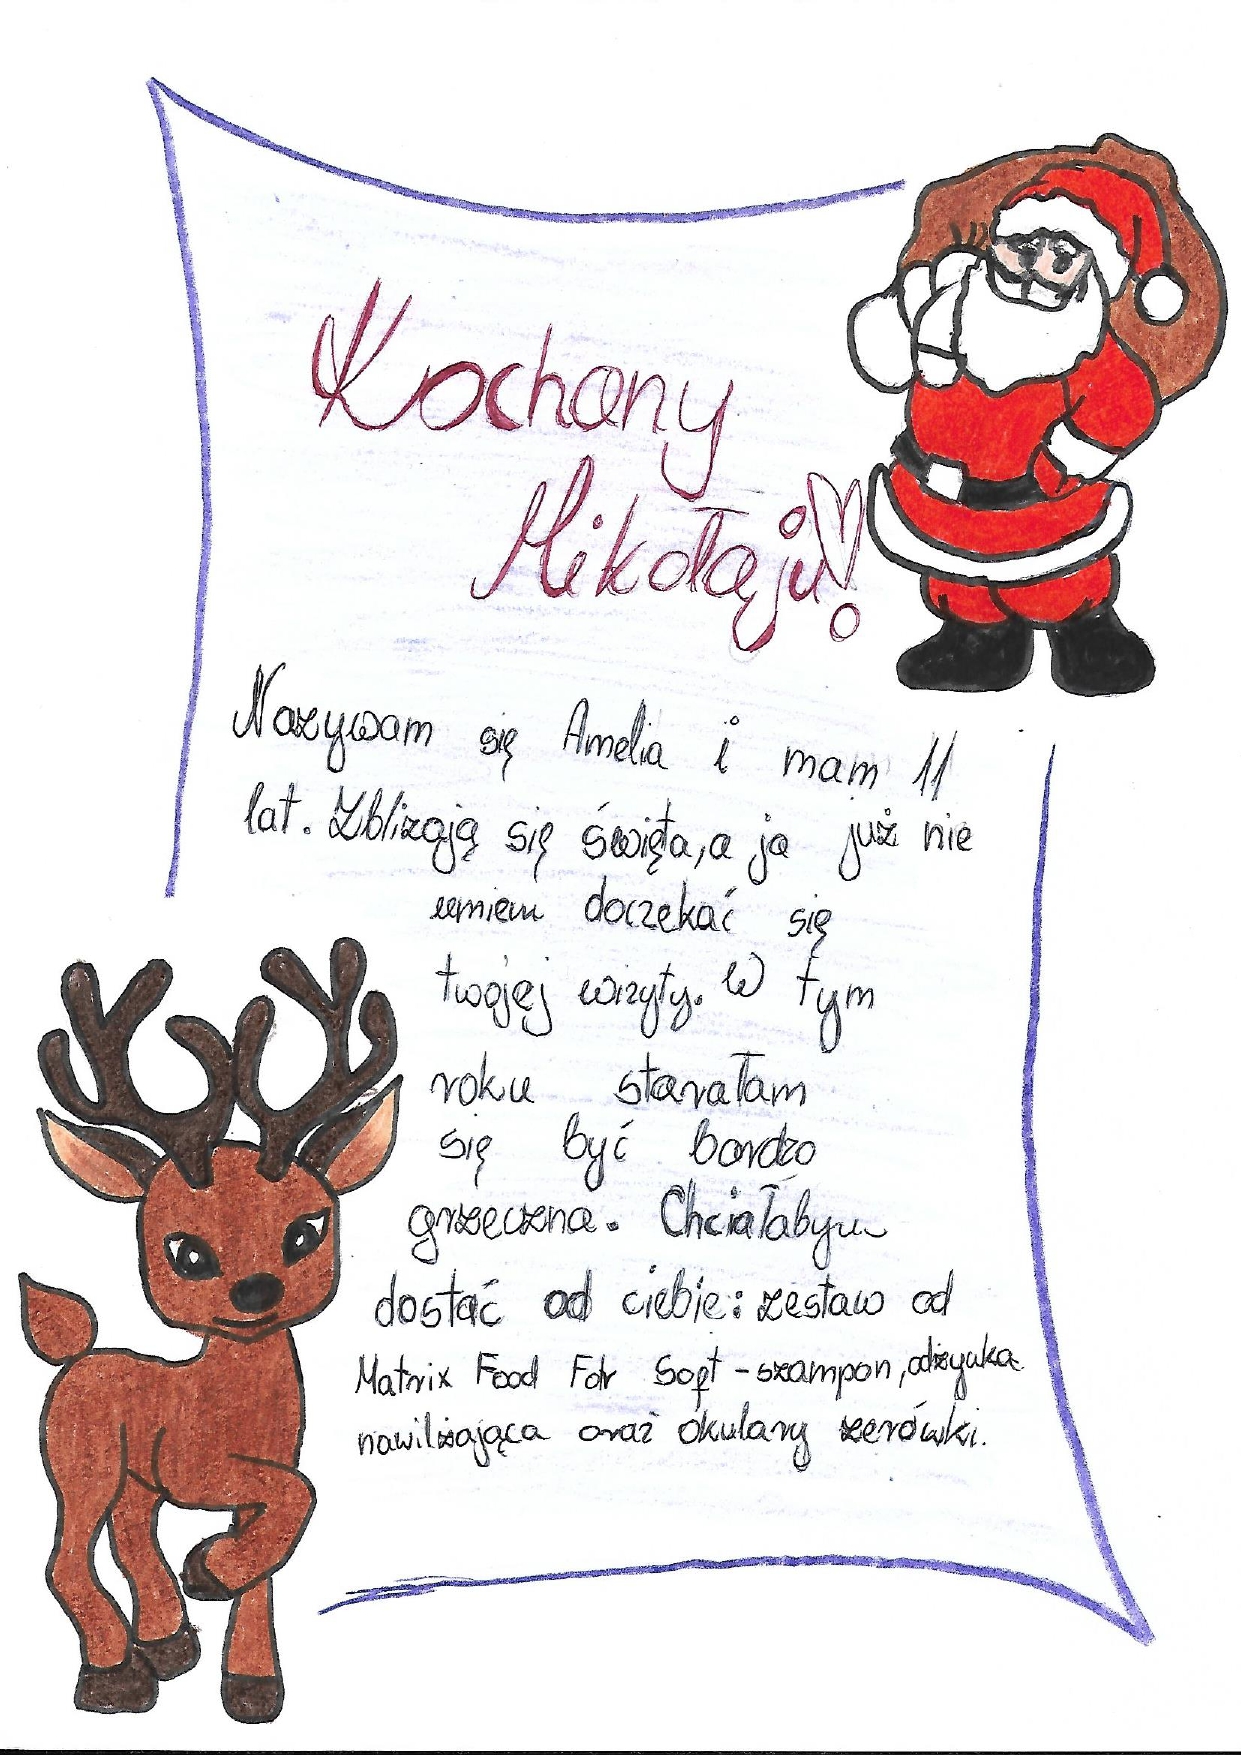 Kochany
Mikołaju!
Nazywam się Amelia i mam 11
lat. Zbliżają się święta, a ja już nie
umiem doczekać się
twojej wizyty. W tym
roku starałam
się być bardzo
grzeczna. Chciałabym
dostać od ciebie: zestaw od
Matrix Food For Soft - szampon, odżywka
nawilżająca oraz okulary zerówki.